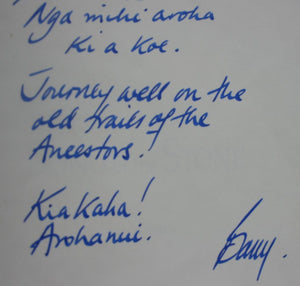 Nga mihi aroha
Ki a Koe.
Journey well on the
old trails of the
Ancestors!
Kia Kaha!
Arohanui.
Barry.